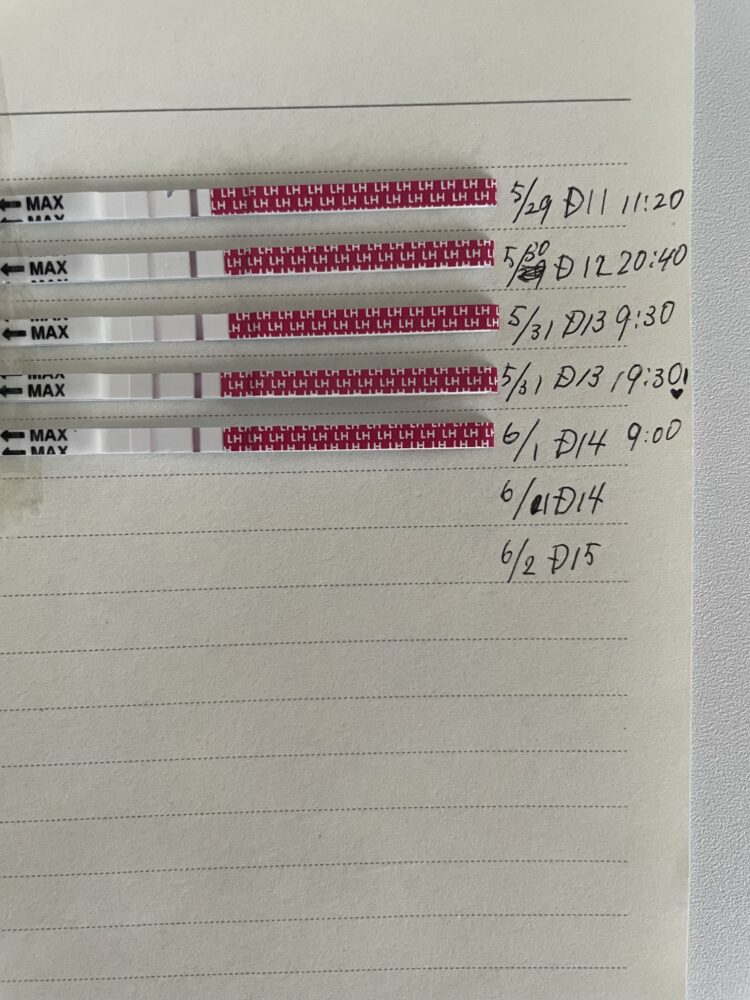 ← MAX LH LH LH LH LH LH LH LH LH LH LH LH 5/29 D11 11:20
← MAX LH LH LH LH LH LH LH LH LH LH LH LH 5/30 D12 20:40
← MAX LH LH LH LH LH LH LH LH LH LH LH LH 5/31 D13 9:30
← MAX LH LH LH LH LH LH LH LH LH LH LH LH 5/31 D13 19:30 ♥
← MAX LH LH LH LH LH LH LH LH LH LH LH LH 6/1 D14 9:00
6/1 D14
6/2 D15